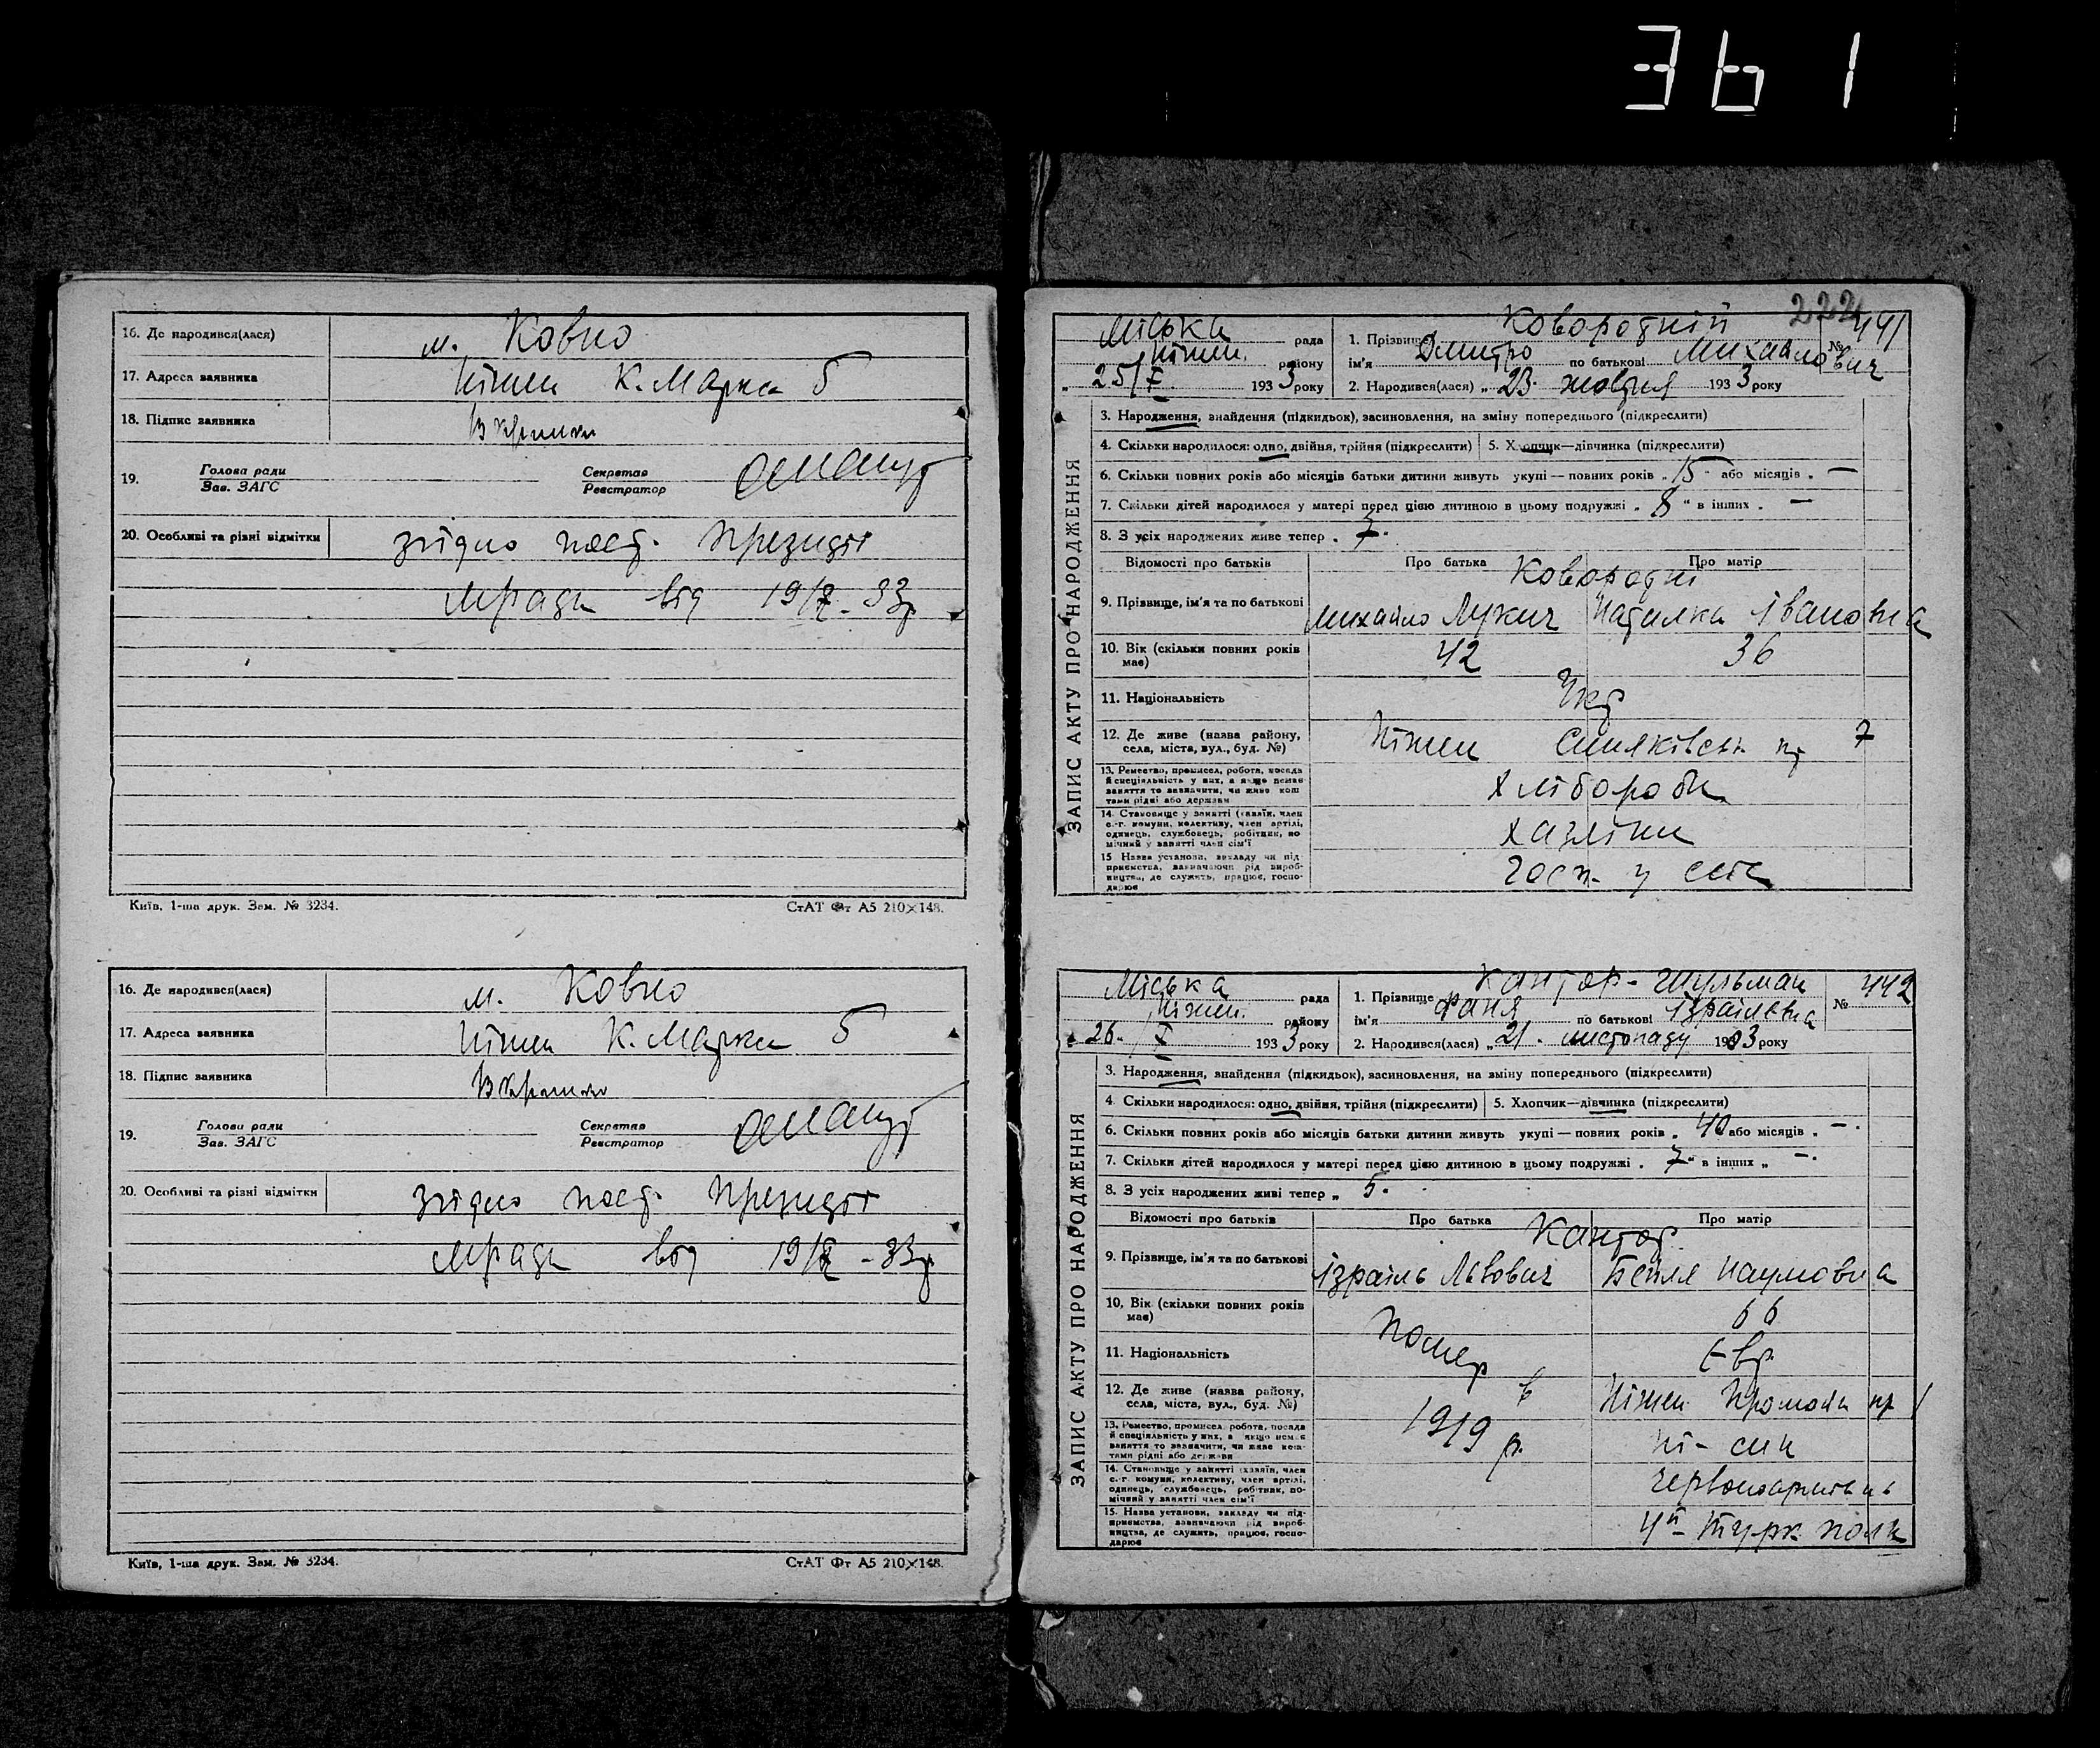 361
16. Де народився(лася) м. Ковно
17. Адреса заявника Ніжен К. Маркса 5
18. Підпис заявника
19. Голова ради Секретар
Зав. ЗАГС Реєстратор
20. Особливі та різні відмітки згідно пост. Президії
мради від 19/X - 33р
Київ, 1-ша друк. Зам. № 3234. СтАТ Фт А5 210×148.
16. Де народився(лася) м. Ковно
17. Адреса заявника Ніжен К. Маркса 5
18. Підпис заявника
19. Голова ради Секретар
Зав. ЗАГС Реєстратор
20. Особливі та різні відмітки згідно пост. Президії
мради від 19/X - 33р
Київ, 1-ша друк. Зам. № 3234. СтАТ Фт А5 210×148.
222
ЗАПИС АКТУ ПРО НАРОДЖЕННЯ
Міська рада 1. Прізвище Коворотній № 441
Ніжен. району ім'я Дмитро по батькові Михайлович
„ 25/X 1933 року 2. Народився(лася) „ 23. жовтня 1933 року
3. Народження, знайдення (підкидьок), засиновлення, на зміну попереднього (підкреслити)
4. Скільки народилося: одно, двійня, трійня (підкреслити) 5. Хлопчик—дівчинка (підкреслити)
6. Скільки повних років або місяців батьки дитини живуть укупі — повних років „ 15 " або місяців „ —
7. Скільки дітей народилося у матері перед цією дитиною в цьому подружжі „ 8 " в інших „ —
8. З усіх народжених живе тепер „ 7.
Відомості про батьків Про батька Про матір
Коворотні
9. Прізвище, ім'я та по батькові Михайло Лукич Наталка Івановна
10. Вік (скільки повних років має) 42 36
11. Національність Укр
12. Де живе (назва району, Ніжен Синяківськ пр 7
села, міста, вул., буд. №)
13. Ремество, промисел, робота, посада
й спеціяльність у них, а якщо немає
заняття то зазначити, чи живе кош
тами рідні або держави
Хлібороби
14. Становище у занятті (хазяїн, член
с.-г. комуни, колективу, член артілі,
одинець, службовець, робітник, по
мічний у занятті член сім'ї
Хазяїни
15 Назва установи, закладу чи під
приємства, зазначаючи рід вироб-
ництва, де служить, працює, госпо-
дарює
Госп. у селі
ЗАПИС АКТУ ПРО НАРОДЖЕННЯ
Міська рада 1. Прізвище Кантор-Шульман № 442
Ніжен. району ім'я Фаня по батькові Ізраільевна
„ 26./X 1933 року 2. Народився(лася) „ 21. листопаду 1903 року
3. Народження, знайдення (підкидьок), засиновлення, на зміну попереднього (підкреслити)
4. Скільки народилося: одно, двійня, трійня (підкреслити) 5. Хлопчик—дівчинка (підкреслити)
6. Скільки повних років або місяців батьки дитини живуть укупі — повних років „ 40 або місяців „ —.
7. Скільки дітей народилося у матері перед цією дитиною в цьому подружжі „ 7 " в інших „ —.
8. З усіх народжених живі тепер „ 5.
Відомості про батьків Про батька Про матір
Кантор
9. Прізвище, ім'я та по батькові Ізраіль Львович Бейля Наумовна
10. Вік (скільки повних років має) 66
11. Національність Помер Євр
12. Де живе (назва району, в Ніжен пр 1
села, міста, вул., буд. №) 1919 р.
13. Ремество, промисел, робота, посада
й спеціяльність у них, а якщо немає
заняття то зазначити, чи живе кош-
тами рідні або держави
ні- син
14. Становище у занятті (хазяїн, член
с.-г. комуни, колективу, член артілі,
одинець, службовець, робітник, по-
мічний у занятті член сім'ї
Червоноармієць
15. Назва установи, закладу чи під-
приємства, зазначаючи рід вироб-
ництва, де служить, працює, госпо-
дарює
4й Турк полк